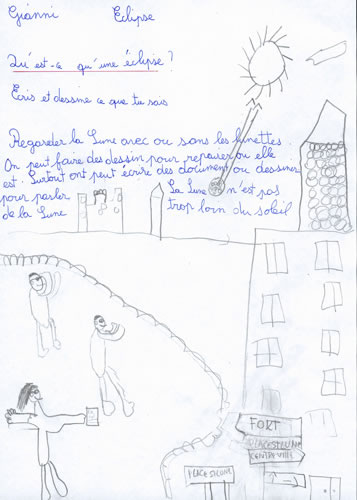 Gianni Eclipse
Qu'est-ce qu'une éclipse ?
Ecris et dessine ce que tu sais
Regarder la Lune avec ou sans les lunettes.
On peut faire des dessin pour repauser ou elle
est. Surtout ont peut écrire des document ou dessiner
pour parler
de la Lune
La Lune n'est pas
trop loin du soleil
FORT
CENTRE VILLE